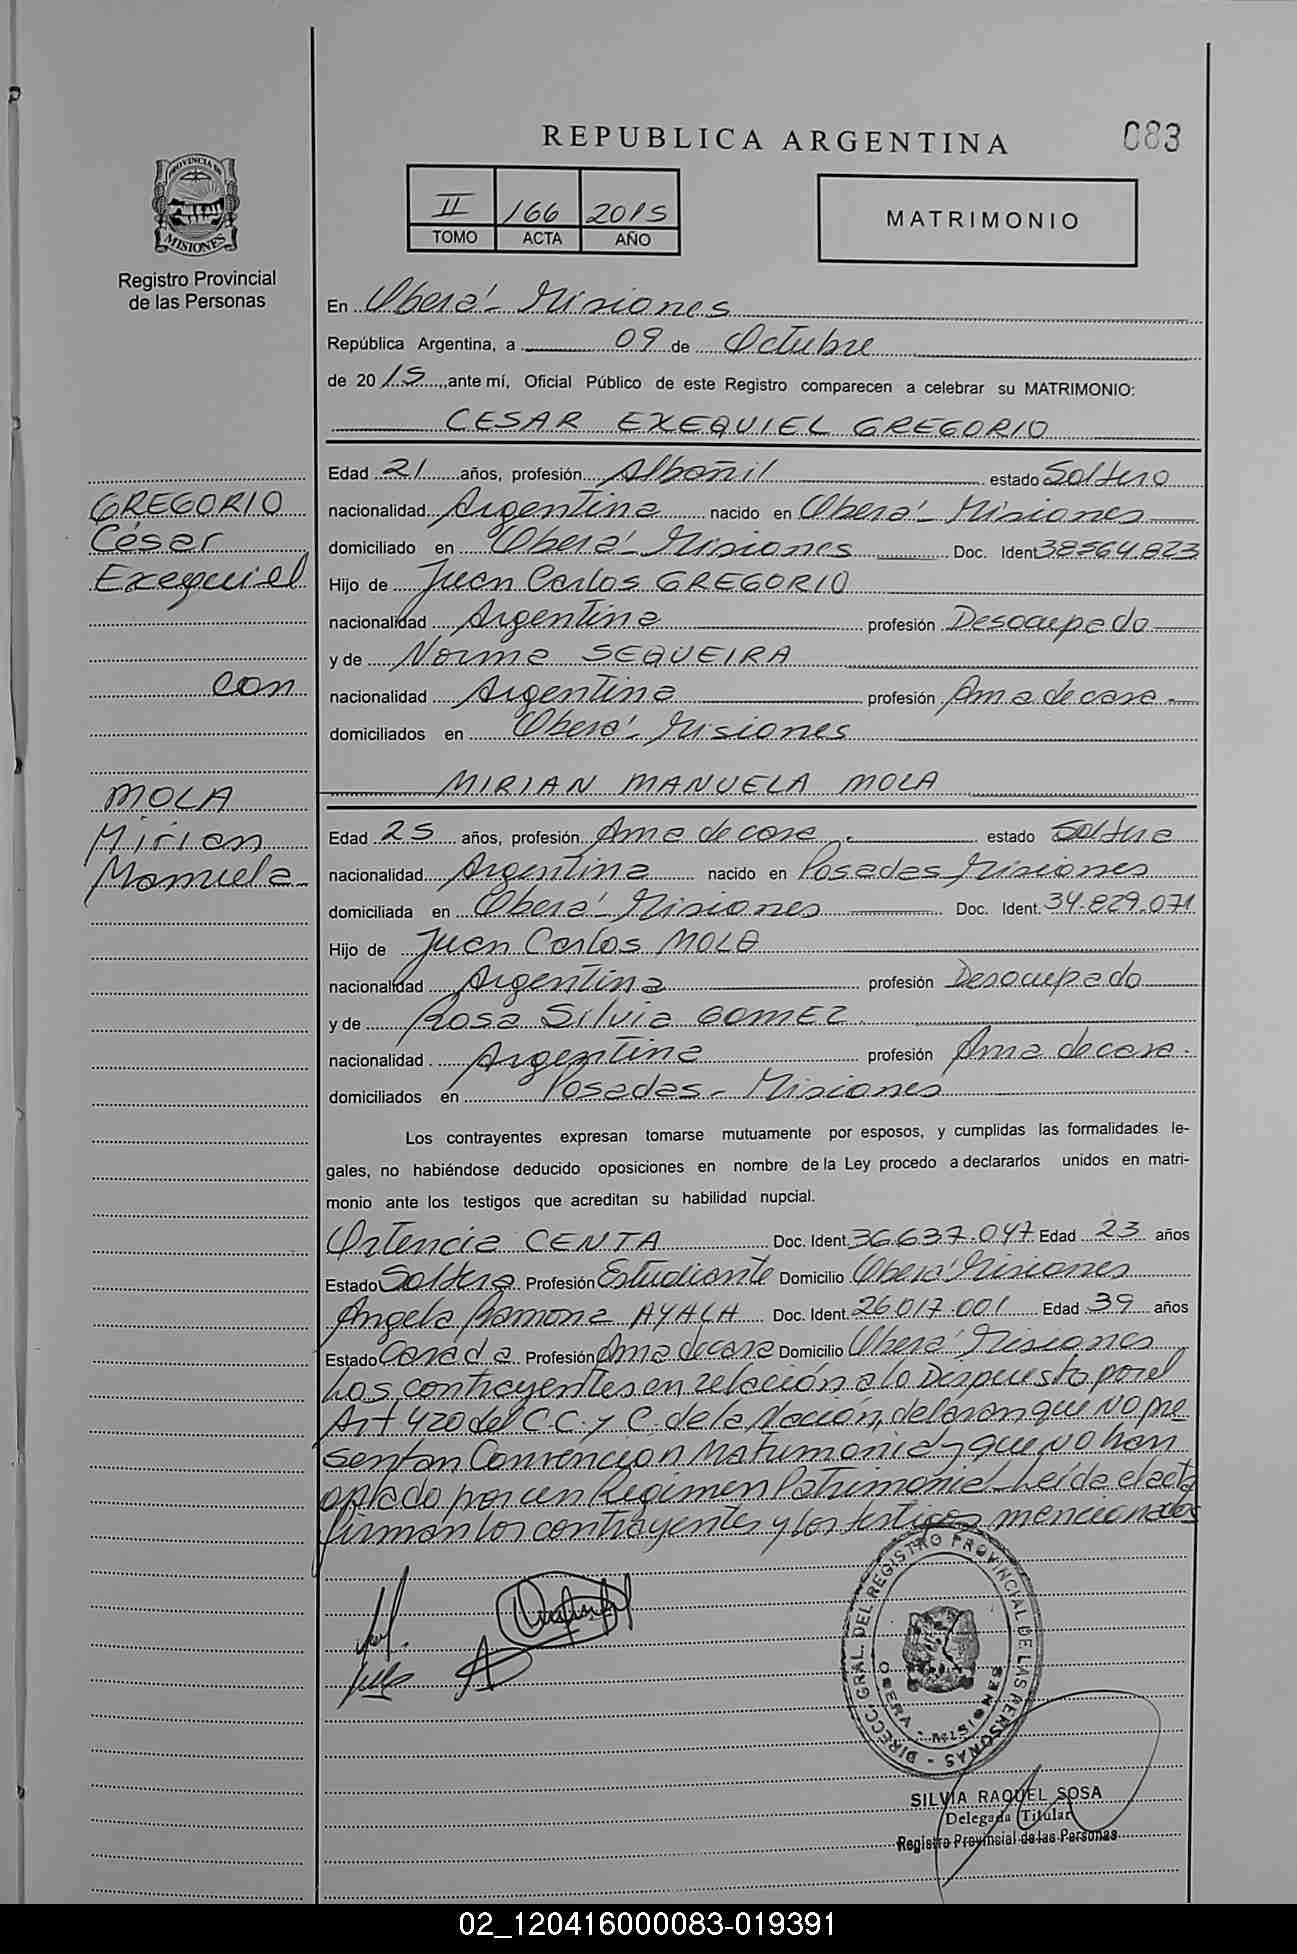 REPUBLICA ARGENTINA
083
II 166 2015
TOMO ACTA AÑO
MATRIMONIO
PROVINCIA DE
MISIONES
Registro Provincial
de las Personas
En Oberá - Misiones
República Argentina, a 09 de Octubre
de 2015, ante mí, Oficial Público de este Registro comparecen a celebrar su MATRIMONIO:
CESAR EXEQUIEL GREGORIO
GREGORIO
César
Exequiel
con
MOLA
Mirian
Manuela
Edad 21 años, profesión Albañil estado Soltero
nacionalidad Argentina nacido en Oberá - Misiones
domiciliado en Oberá - Misiones Doc. Ident 38564.823
Hijo de Juan Carlos GREGORIO
nacionalidad Argentina profesión Desocupado
y de Norma SEQUEIRA
nacionalidad Argentina profesión Ama de casa
domiciliados en Oberá - Misiones
MIRIAN MANUELA MOLA
Edad 25 años, profesión Ama de casa estado Soltera
nacionalidad Argentina nacido en Posadas Misiones
domiciliada en Oberá - Misiones Doc. Ident. 34.829.071
Hijo de Juan Carlos MOLA
nacionalidad Argentina profesión Desocupado
y de Rosa Silvia GOMEZ
nacionalidad Argentina profesión Ama de casa.
domiciliados en Posadas - Misiones
Los contrayentes expresan tomarse mutuamente por esposos, y cumplidas las formalidades le-
gales, no habiéndose deducido oposiciones en nombre de la Ley procedo a declararlos unidos en matri-
monio ante los testigos que acreditan su habilidad nupcial.
Ortencia CENTA Doc. Ident. 36.637.047 Edad 23 años
Estado Soltera Profesión Estudiante Domicilio Oberá Misiones
Angela Ramona AYALA Doc. Ident. 26.017.001 Edad 39 años
Estado Casada Profesión Ama de casa Domicilio Oberá Misiones
Los contrayentes en relación a lo Dispuesto por el
Art 420 del C.C. y C. de la Nación, delaran que No pre
sentan Convención Matrimonial y que No han
optado por un Régimen Patrimonial - Leída el acta
firman los contrayentes y los testigos mencionados
DIRECC. GRAL. DEL REGISTRO PROVINCIAL DE LAS PERSONAS
OBERA - MISIONES
SILVIA RAQUEL SOSA
Delegada Titular
Registro Provincial de las Personas
02_120416000083-019391